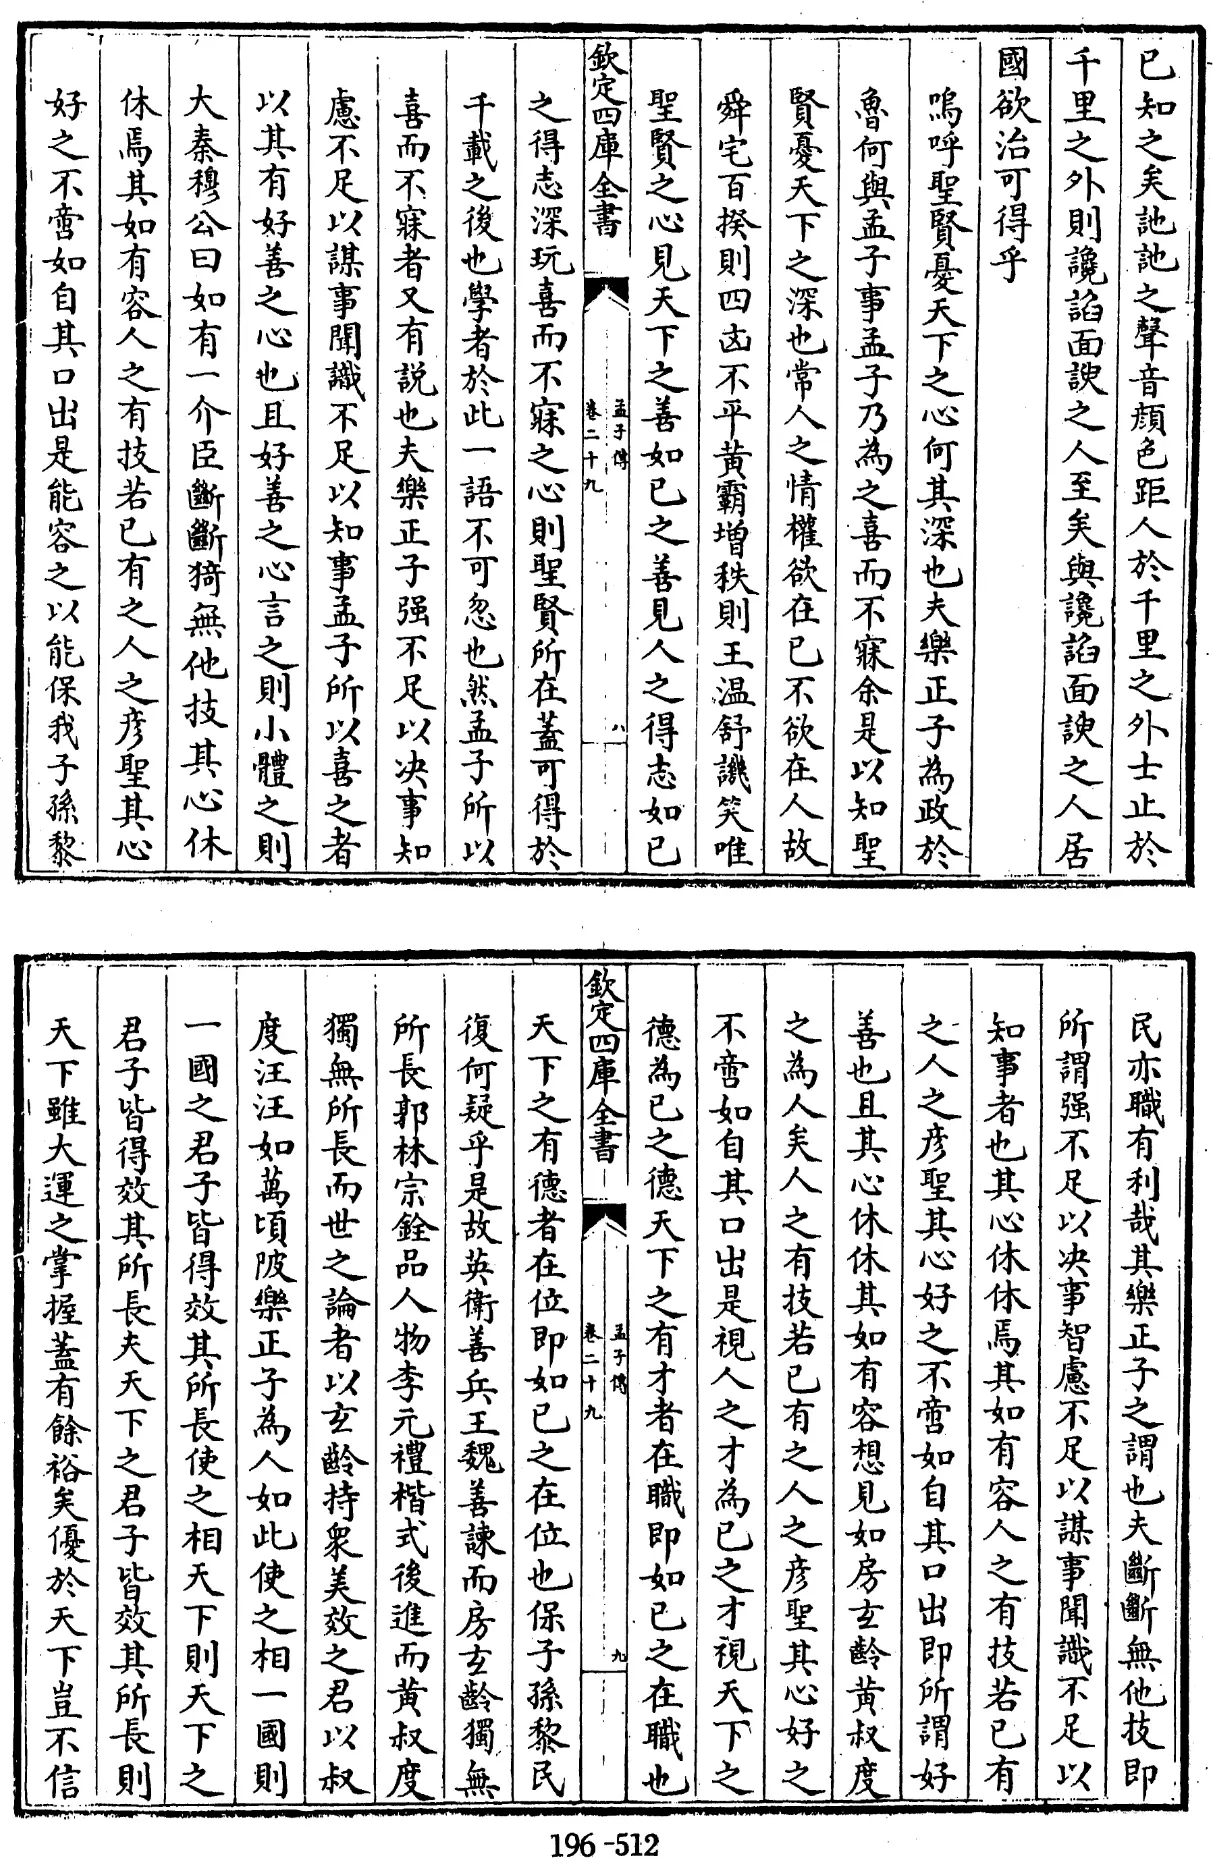 已知之矣訑訑之聲音顔色距人於千里之外士止於
千里之外則讒諂面諛之人至矣與讒諂面諛之人居
國欲治可得乎
嗚呼聖賢憂天下之心何其深也夫樂正子為政於
魯何與孟子事孟子乃為之喜而不寐余是以知聖
賢憂天下之深也常人之情權欲在已不欲在人故
舜宅百揆則四凶不平黄霸増秩則王温舒譏笑唯
聖賢之心見天下之善如已之善見人之得志如已
欽定四庫全書
孟子傳
卷二十九
八
之得志深玩喜而不寐之心則聖賢所在蓋可得於
千載之後也學者於此一語不可忽也然孟子所以
喜而不寐者又有説也夫樂正子强不足以决事知
慮不足以謀事聞識不足以知事孟子所以喜之者
以其有好善之心也且好善之心言之則小體之則
大秦穆公曰如有一介臣斷斷猗無他技其心休
休焉其如有容人之有技若已有之人之彦聖其心
好之不啻如自其口出是能容之以能保我子孫黎
民亦職有利哉其樂正子之謂也夫斷斷無他技即
所謂强不足以决事智慮不足以謀事聞識不足以
知事者也其心休休焉其如有容人之有技若已有
之人之彦聖其心好之不啻如自其口出即所謂好
善也且其心休休其如有容想見如房玄齡黄叔度
之為人矣人之有技若已有之人之彦聖其心好之
不啻如自其口出是視人之才為已之才視天下之
德為已之德天下之有才者在職即如已之在職也
欽定四庫全書
孟子傳
卷二十九
九
天下之有德者在位即如已之在位也保子孫黎民
復何疑乎是故英衛善兵王魏善諫而房玄齡獨無
所長郭林宗銓品人物李元禮楷式後進而黄叔度
獨無所長而世之論者以玄齡持衆美效之君以叔
度汪汪如萬頃陂樂正子為人如此使之相一國則
一國之君子皆得效其所長使之相天下則天下之
君子皆得效其所長夫天下之君子皆效其所長則
天下雖大運之掌握蓋有餘裕矣優於天下豈不信
196-512